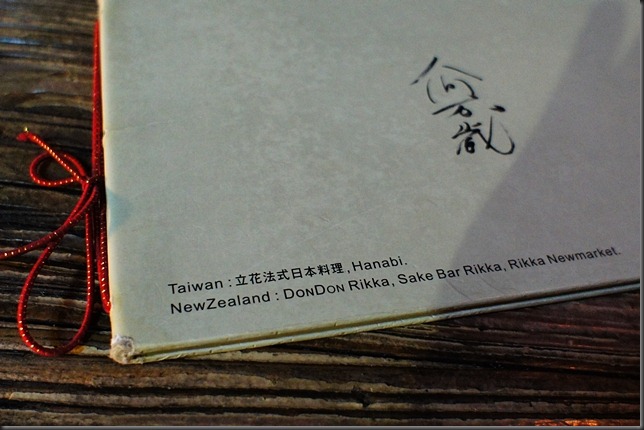 何万歲
Taiwan : 立花法式日本料理 , Hanabi.
NewZealand : DONDON Rikka, Sake Bar Rikka, Rikka Newmarket.